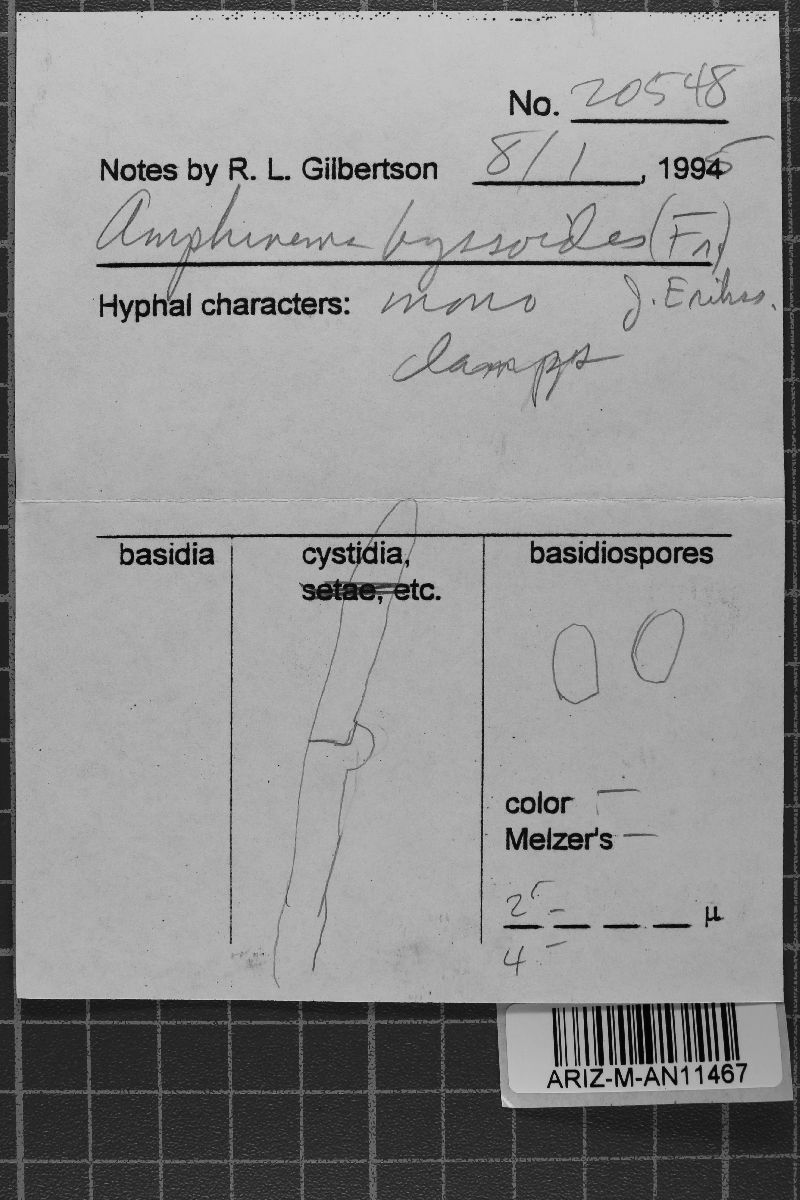 No. 20548
Notes by R. L. Gilbertson 8/1, 1995
Amphinema byssoides (Fr.)
Hyphal characters: mono J. Erikss.
clamps
basidia cystidia, basidiospores
setae, etc.
color –
Melzer's –
µ
4 –
ARIZ-M-AN11467